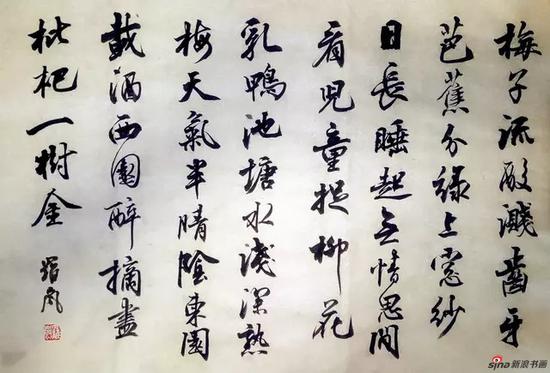 梅子流酸濺齒牙
芭蕉分綠上窗紗
日長睡起無情思閒
看兒童捉柳花
乳鴨池塘水淺深熟
梅天氣半晴陰東園
載酒西園醉摘盡
枇杷一樹金
sina新浪书画